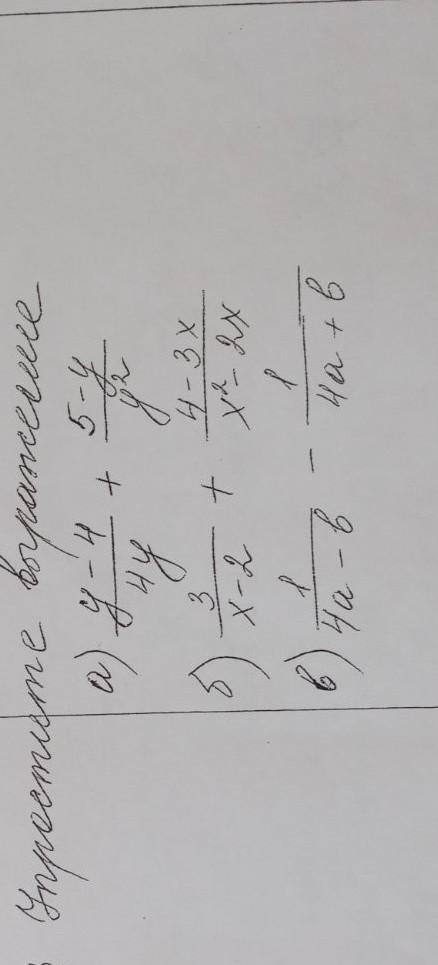 Упростите выражение
а) y-4/4y + 5-y/y²
б) 3/x-2 + 4-3x/x²-2x
в) 1/4a-b - 1/4a+b